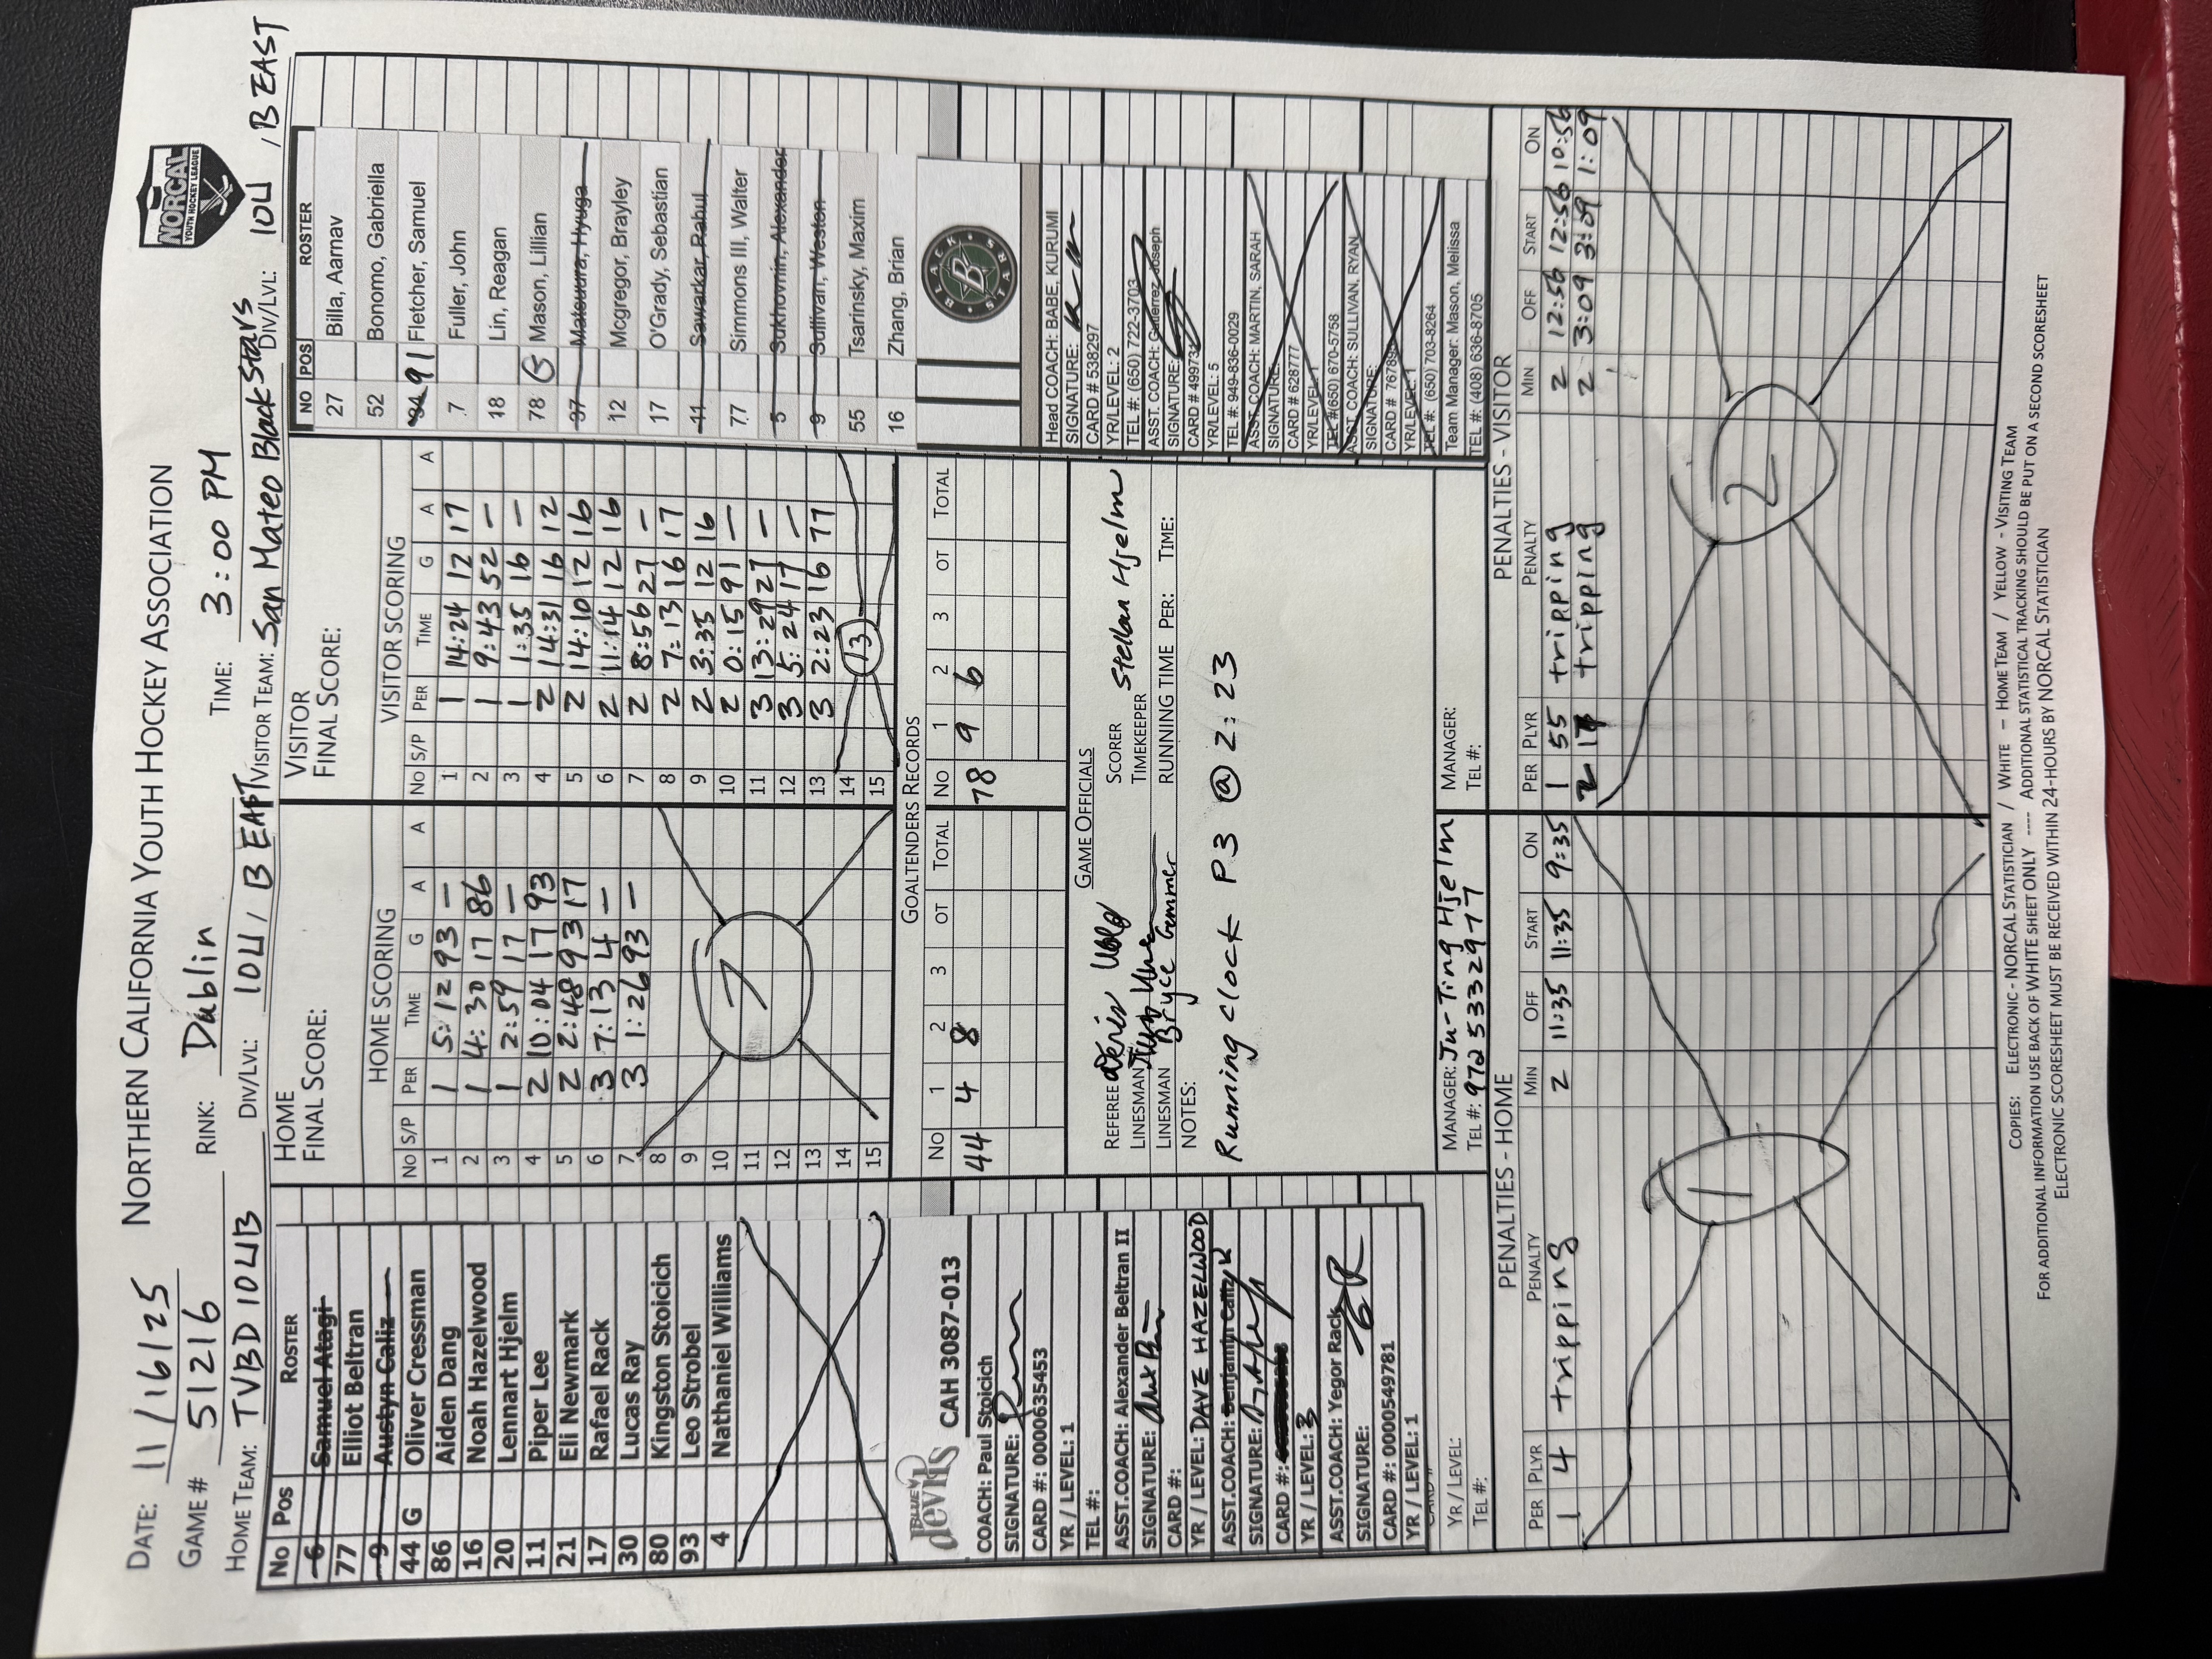 NORTHERN CALIFORNIA YOUTH HOCKEY ASSOCIATION
NORCAL
YOUTH HOCKEY LEAGUE
DATE: 11/16/25
GAME # 51216 RINK: Dublin TIME: 3:00 PM
HOME TEAM: TVBD 10UB DIV/LVL: 10U / B EAST VISITOR TEAM: San Mateo Black Stars DIV/LVL: 10U / B EAST
NO POS ROSTER
6 Samuel Atagi
77 Elliot Beltran
9 Austyn Caliz
44 G Oliver Cressman
86 Aiden Dang
16 Noah Hazelwood
20 Lennart Hjelm
11 Piper Lee
21 Eli Newmark
17 Rafael Rack
30 Lucas Ray
80 Kingston Stoicich
93 Leo Strobel
4 Nathaniel Williams
BLUE devils CAH 3087-013
COACH: Paul Stoicich
SIGNATURE:
CARD #: 0000635453
YR / LEVEL: 1
TEL #:
ASST.COACH: Alexander Beltran II
SIGNATURE:
CARD #:
YR / LEVEL: DAVE HAZELWOOD
ASST.COACH:
SIGNATURE:
CARD #:
YR / LEVEL: 3
ASST.COACH: Yegor Rack
SIGNATURE:
CARD #: 0000549781
YR / LEVEL: 1
YR / LEVEL:
TEL #:
HOME
FINAL SCORE:
HOME SCORING
NO S/P PER TIME G A A
1 1 5:12 93 —
2 1 4:30 17 86
3 1 2:59 17 —
4 2 10:04 17 93
5 2 2:48 93 17
6 3 7:13 4 —
7 3 1:26 93 —
8
9
10
11
12
13
14
15
7
VISITOR
FINAL SCORE:
VISITOR SCORING
NO S/P PER TIME G A A
1 1 14:24 12 17
2 1 9:43 52 —
3 1 1:35 16 —
4 2 14:31 16 12
5 2 14:10 12 16
6 2 11:14 12 16
7 2 8:56 27 —
8 2 7:13 16 17
9 2 3:35 12 16
10 2 0:15 91 —
11 3 13:29 27 —
12 3 5:24 17 —
13 3 2:23 16 77
14
15
13
GOALTENDERS RECORDS
NO 1 2 3 OT TOTAL NO 1 2 3 OT TOTAL
44 4 8 78 9 6
GAME OFFICIALS
REFEREE SCORER Stellan Hjelm
LINESMAN TIMEKEEPER
LINESMAN Bryce RUNNING TIME PER: TIME:
NOTES:
Running clock P3 @ 2:23
MANAGER: Ju-Ting Hjelm
TEL #: 972 533 2977
MANAGER:
TEL #:
NO POS ROSTER
27 Billa, Aarnav
52 Bonomo, Gabriella
34 91 Fletcher, Samuel
7 Fuller, John
18 Lin, Reagan
78 G Mason, Lillian
37 Matsuura, Hyuga
12 Mcgregor, Brayley
17 O'Grady, Sebastian
11 Sawarkar, Rahul
77 Simmons III, Walter
5 Sukhovnin, Alexander
9 Sullivan, Weston
55 Tsarinsky, Maxim
16 Zhang, Brian
BLACK STARS
B
Head COACH: BABE, KURUMI
SIGNATURE:
CARD # 538297
YR/LEVEL: 2
TEL #: (650) 722-3703
ASST. COACH: Gutierrez, Joseph
SIGNATURE:
CARD # 499731
YR/LEVEL: 5
TEL #: 949-836-0029
ASST. COACH: MARTIN, SARAH
SIGNATURE:
CARD # 628777
YR/LEVEL: 1
TEL #(650) 670-5758
ASST COACH: SULLIVAN, RYAN
SIGNATURE:
CARD #
YR/LEVEL: 1
TEL #: (650) 703-8264
Team Manager: Mason, Melissa
TEL #: (408) 636-8705
PENALTIES - HOME
PER PLYR PENALTY MIN OFF START ON
1 4 tripping 2 11:35 11:35 9:35
1
PENALTIES - VISITOR
PER PLYR PENALTY MIN OFF START ON
1 55 tripping 2 12:56 12:56 10:56
2 17 tripping 2 3:09 3:09 1:09
2
COPIES: ELECTRONIC - NORCAL STATISTICIAN / WHITE – HOME TEAM / YELLOW - VISITING TEAM
FOR ADDITIONAL INFORMATION USE BACK OF WHITE SHEET ONLY ---- ADDITIONAL STATISTICAL TRACKING SHOULD BE PUT ON A SECOND SCORESHEET
ELECTRONIC SCORESHEET MUST BE RECEIVED WITHIN 24-HOURS BY NORCAL STATISTICIAN